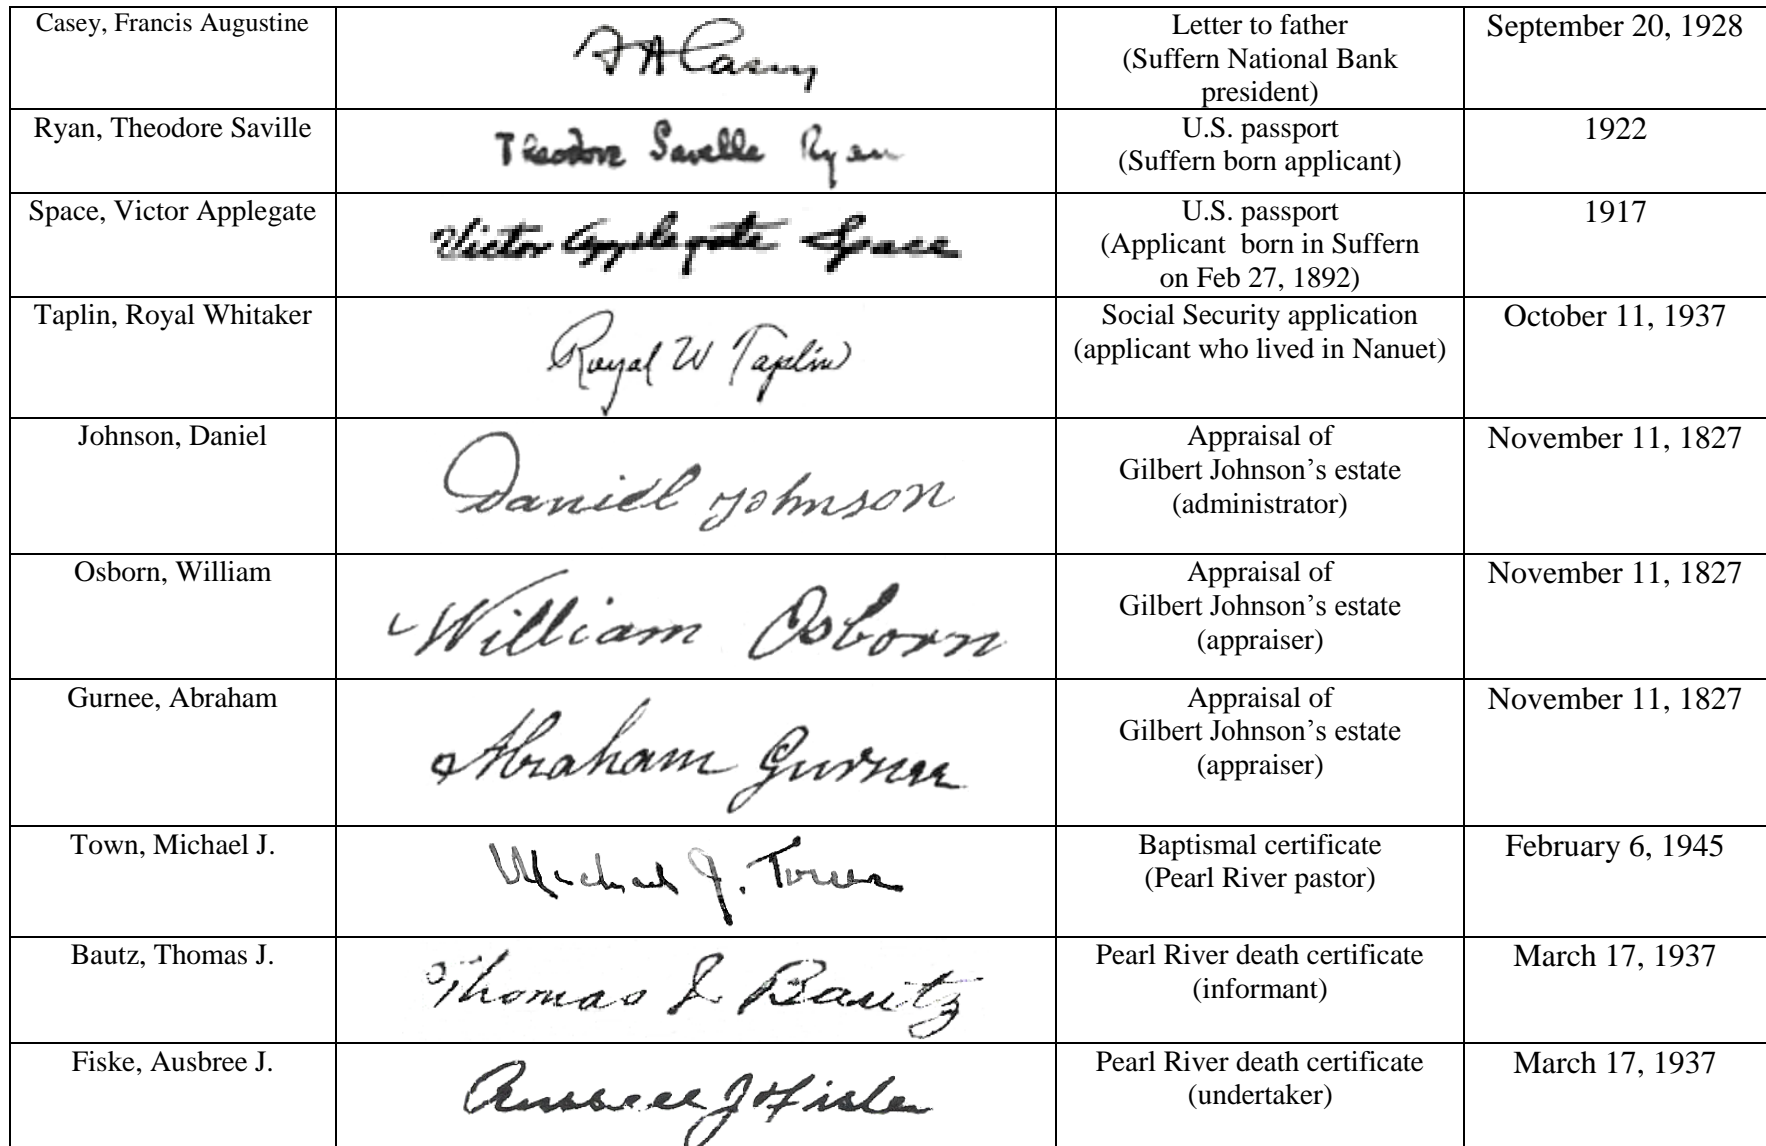 Casey, Francis Augustine
F A Casey
Letter to father
(Suffern National Bank
president)
September 20, 1928
Ryan, Theodore Saville
Theodore Saville Ryan
U.S. passport
(Suffern born applicant)
1922
Space, Victor Applegate
Victor Applegate Space
U.S. passport
(Applicant born in Suffern
on Feb 27, 1892)
1917
Taplin, Royal Whitaker
Royal W Taplin
Social Security application
(applicant who lived in Nanuet)
October 11, 1937
Johnson, Daniel
Daniel Johnson
Appraisal of
Gilbert Johnson’s estate
(administrator)
November 11, 1827
Osborn, William
William Osborn
Appraisal of
Gilbert Johnson’s estate
(appraiser)
November 11, 1827
Gurnee, Abraham
Abraham Gurnee
Appraisal of
Gilbert Johnson’s estate
(appraiser)
November 11, 1827
Town, Michael J.
Michael J.
Baptismal certificate
(Pearl River pastor)
February 6, 1945
Bautz, Thomas J.
Thomas J Bautz
Pearl River death certificate
(informant)
March 17, 1937
Fiske, Ausbree J.
Pearl River death certificate
(undertaker)
March 17, 1937